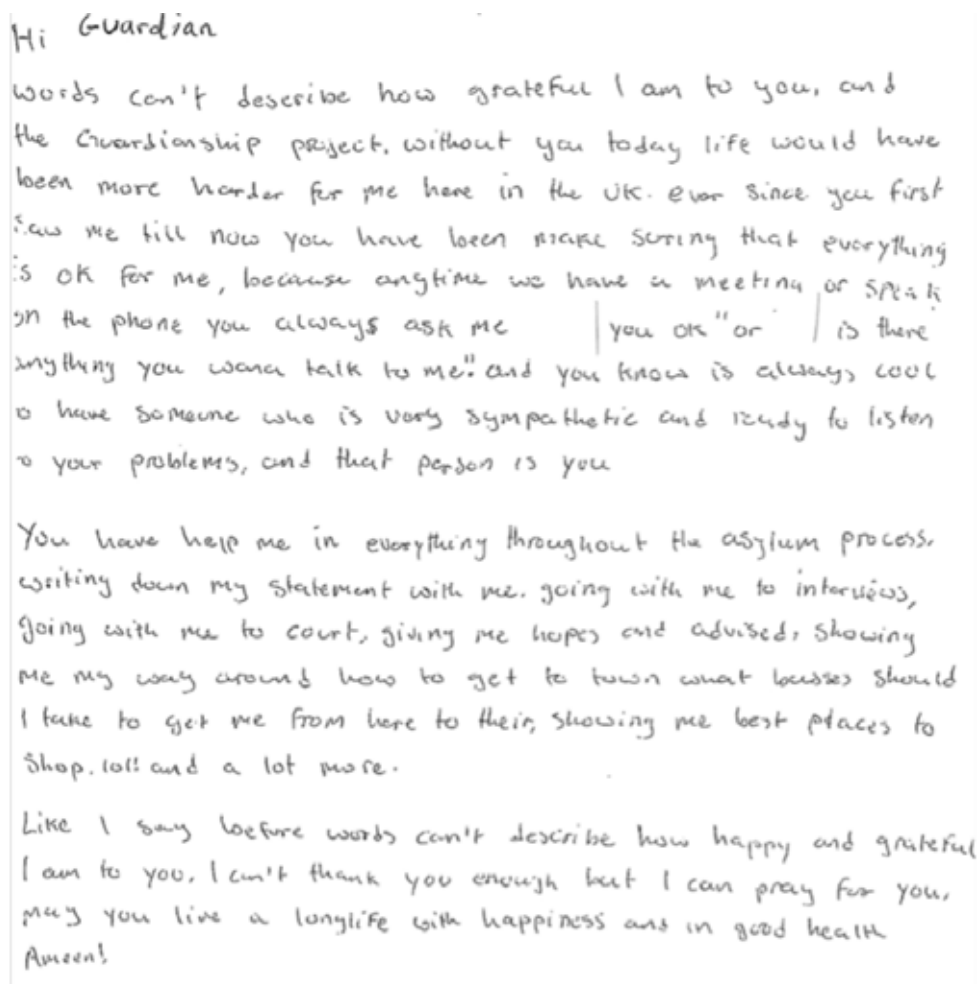 Hi Guardian
words can't describe how grateful I am to you, and
the Guardianship project, without you today life would have
been more harder for me here in the UK. ever since you first
saw me till now you have been make suring that everything
is ok for me, because anytime we have a meeting or speak
on the phone you always ask me you ok" or is there
anything you wana talk to me." and you know is always cool
to have someone who is very sympathetic and ready to listen
to your problems, and that person is you
You have help me in everything throughout the asylum process.
writing down my statement with me. going with me to interviews,
going with me to court, giving me hopes and advised, showing
me my way around how to get to town what busses should
I take to get me from here to their, showing me best places to
shop. lol! and a lot more.
Like I say before words can't describe how happy and grateful
I am to you. I can't thank you enough but I can pray for you.
may you live a longlife with happiness and in good health
Ameen!